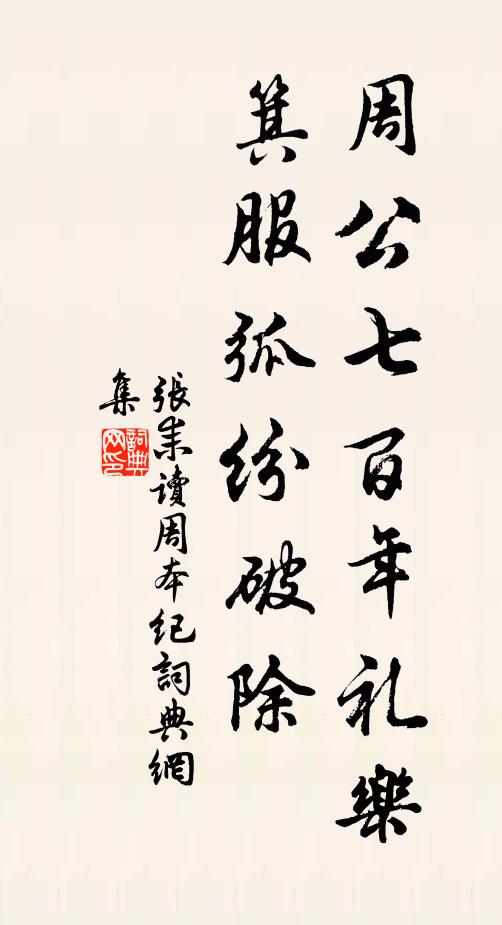 周公七百年礼樂
箕服弧纷破除
張耒讀周本紀詞典網
集
詞典
网印